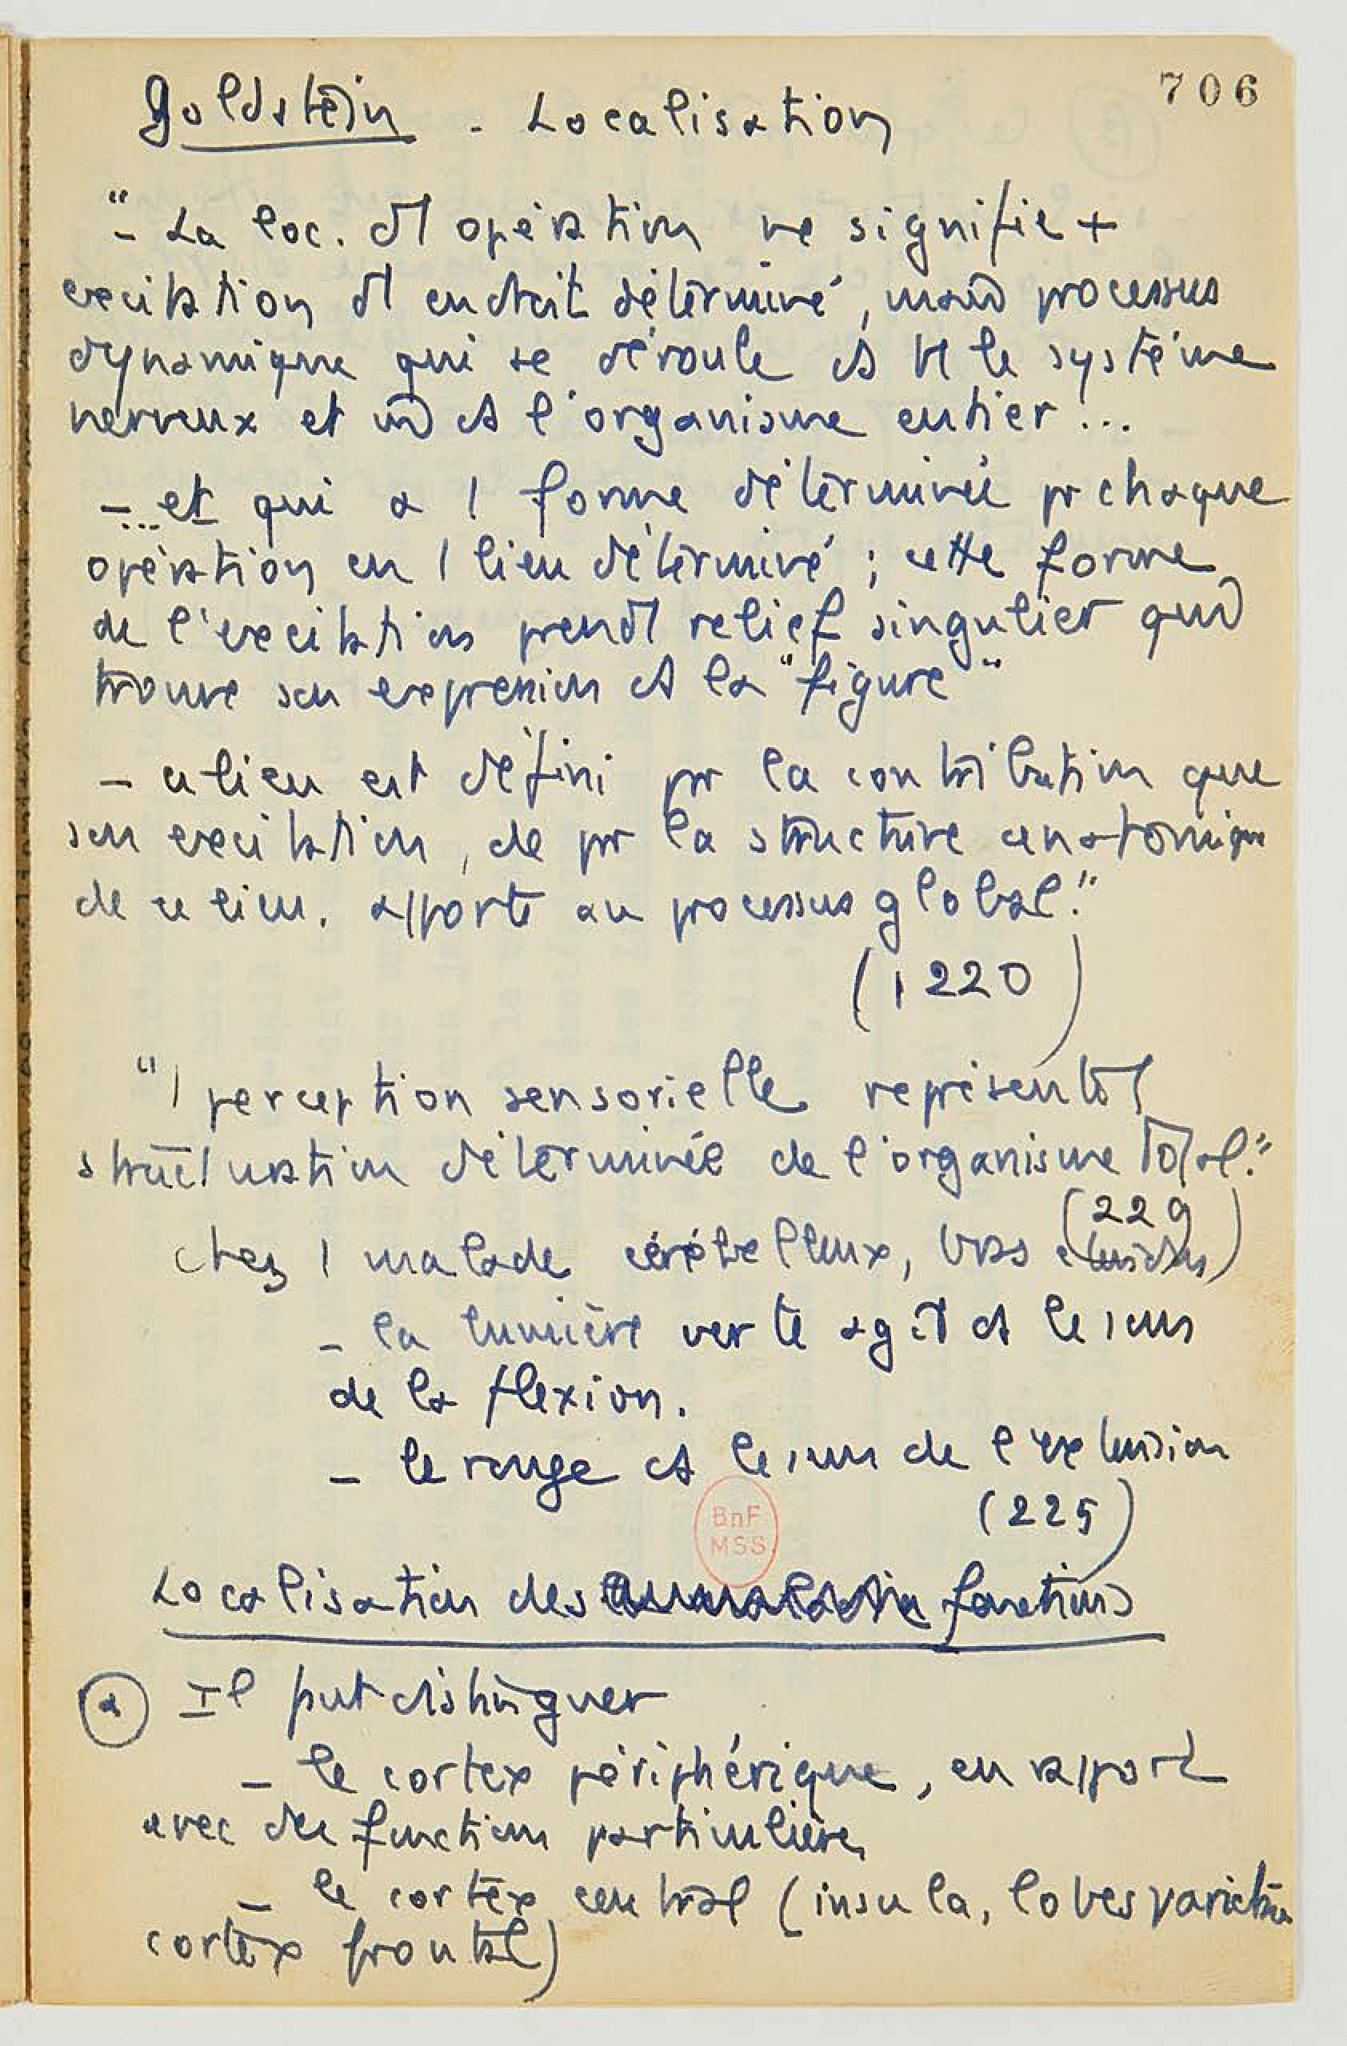 706
Goldstein - Localisation
"- La loc. d'1 opération ne signifie +
excitation d'1 endroit déterminé, mais processus
dynamique qui se déroule ds tt le système
nerveux et ds l'organisme entier...
- ... et qui a 1 forme déterminée pr chaque
opération en 1 lieu déterminé ; cette forme
de l'excitation prend 1 relief singulier qui
trouve son expression ds la "figure"
- ce lieu est défini pr la contribution que
son excitation, de pr la structure anatomique
de ce lieu, apporte au processus global."
(1 220)
"1 perception sensorielle représente 1
structuration déterminée de l'organisme total."
(229)
chez 1 malade cérébelleux, bras
- la lumière verte agit ds le sens
de la flexion.
- le rouge ds le sens de l'extension
(225)
BnF
MSS
Localisation des fonctions
a Il faut distinguer
- le cortex périphérique, en rapport
avec des fonctions particulières
- le cortex central (insula, lobes pariétaux
cortex frontal)